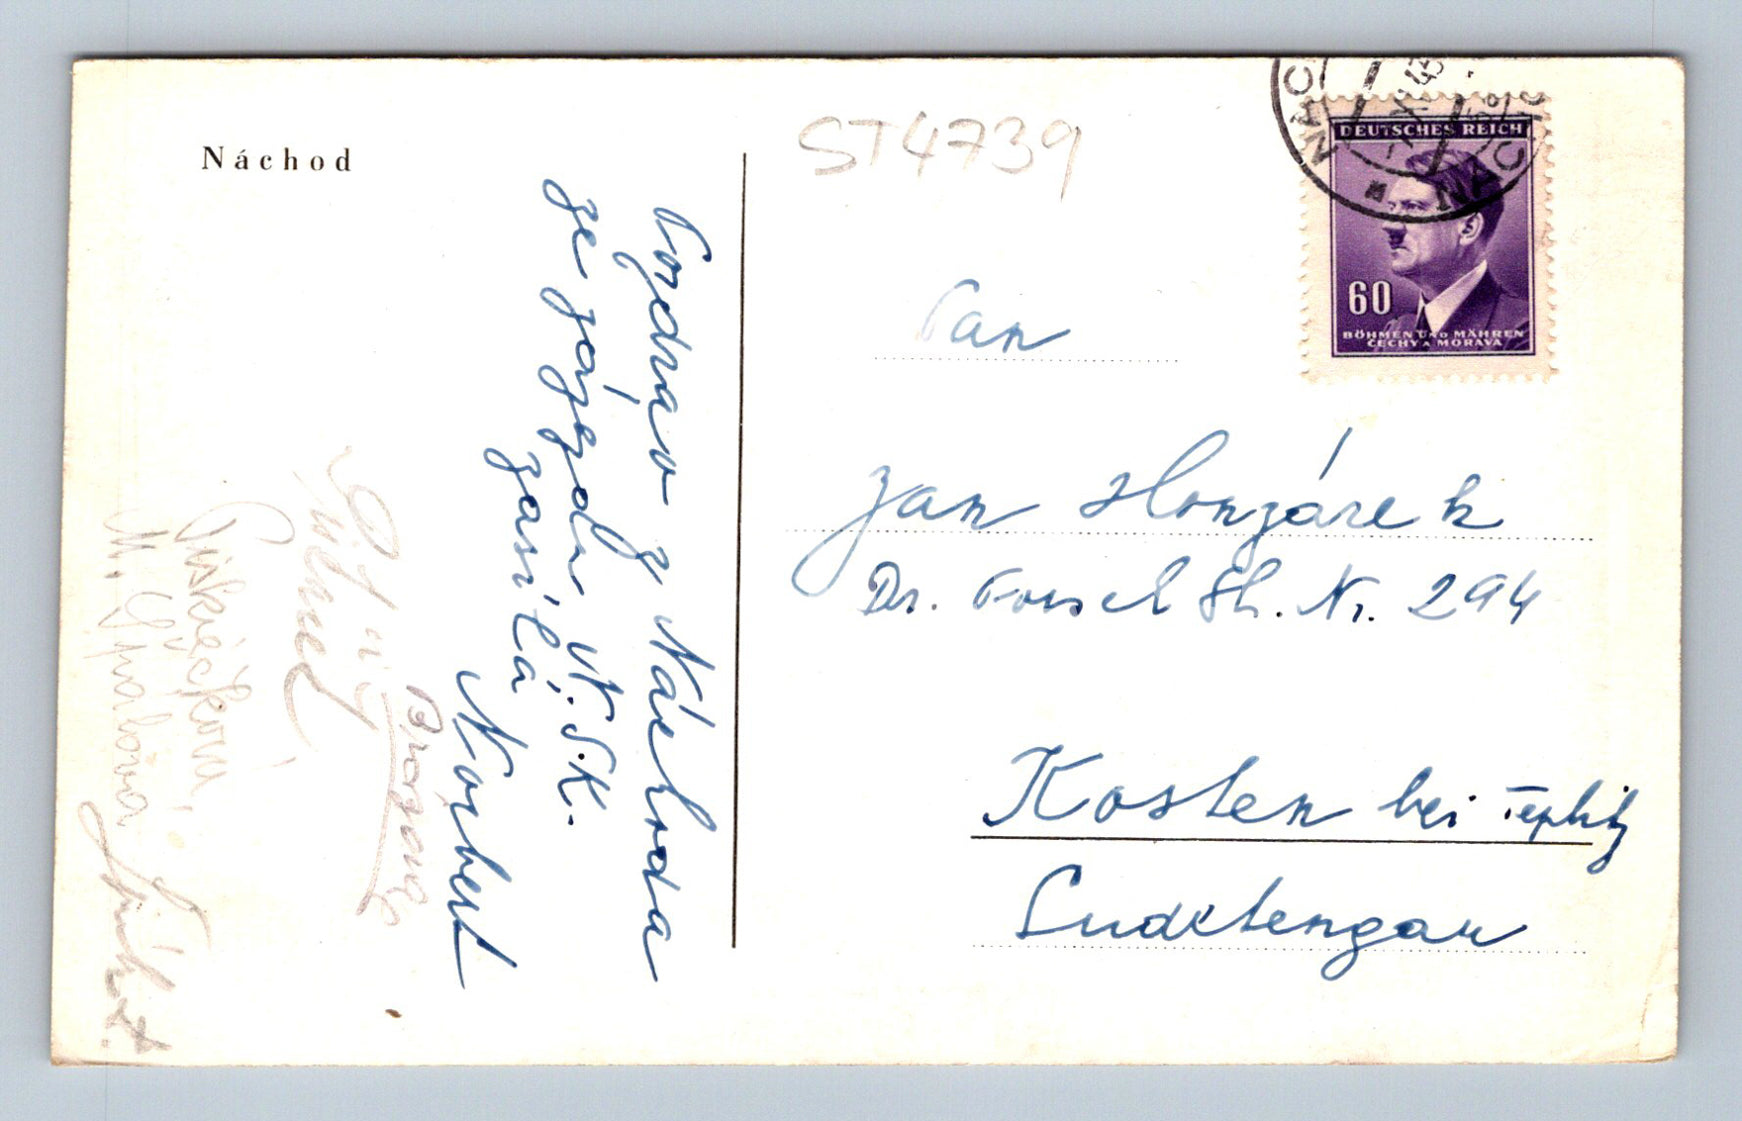 Náchod
ST4739
Pozdrav z Náchoda
ze zájezdu N.S.K.
zasílá
Norbert
Brozane
M.
DEUTSCHES REICH
60
BÖHMEN UND MÄHREN
ČECHY A MORAVA
NÁCHOD
Pan
Jan Honzárek
Dr. Str. Nr. 294
Kosten bei Teplitz
Sudetengau